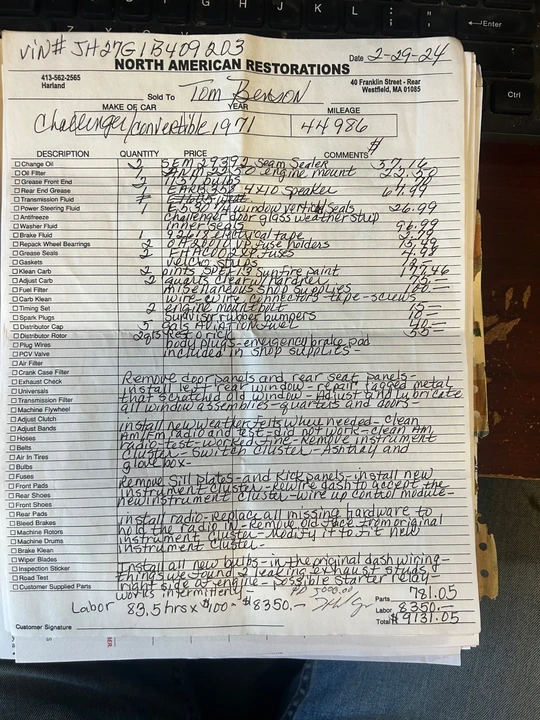 Enter
Ctrl
VIN# JH27G1B409203
Date 2-29-24
NORTH AMERICAN RESTORATIONS
413-562-2565
Harland
40 Franklin Street - Rear
Westfield, MA 01085
Sold To Tom Benson
MAKE OF CAR YEAR MILEAGE
Challenger/convertible 1971 44986
DESCRIPTION QUANTITY PRICE COMMENTS $
Change Oil 2 SEM 29392 Seam Sealer 37.16
Oil Filter 1 engine mount 22.50
Grease Front End 2 bulbs
Rear End Grease 1 4x10 speaker 67.99
Transmission Fluid
Power Steering Fluid 1 window vertical seals 26.99
Antifreeze challenger door glass weatherstrip
Washer Fluid inner seals
Brake Fluid 1 electrical tape
Repack Wheel Bearings 2 fuse holders
Grease Seals 2 fuses
Gaskets velcro strips
Klean Carb 2 pints Sunfire paint 177.46
Adjust Carb 2 quarts clear w/hardner
Fuel Filter miscellaneous shop supplies
Carb Klean wire-wire connectors-tape-screws
Timing Set 2 engine mount bolt
Spark Plugs Sunvisor rubber bumpers
Distributor Cap 5 gals AViation fuel 40—
Distributor Rotor 55—
Plug Wires body plugs-emergency brake pad
PCV Valve included in shop supplies-
Air Filter
Crank Case Filter
Exhaust Check Remove door panels and rear seat panels-
Universals install left rear window-repair jagged metal
Transmission Filter that scratched old window-Adjust and lubricate
Machine Flywheel all window assemblies-quarters and doors-
Adjust Clutch
Adjust Bands install new weather felts when needed-clean
Hoses Am/Fm radio and test-did not work-clean AM
Belts radio-test-worked fine-Remove instrument
Air In Tires cluster-switch cluster-Ashtray and
Bulbs glove box-
Fuses
Front Pads Remove Sill plates-and Kick panels-install new
Rear Shoes instrument cluster-Rewire dash to accept the
Front Shoes new instrument cluster-wire up control module-
Rear Pads
Bleed Brakes install radio-Replace all missing hardware to
Machine Rotors hold the radio IN-Remove old face from original
Machine Drums instrument cluster-Modify it to fit new
Brake Klean instrument cluster-
Wiper Blades
Inspection Sticker Install all new bulbs-in the original dash wiring-
Road Test things we found 2 leaking exhaust studs
Customer Supplied Parts right side of engine-possible starter relay-
works intermittently-
Parts 781.05
Labor 83.5 hrs x $100- $8350.—
Labor 8350.—
Customer Signature
Total $9131.05